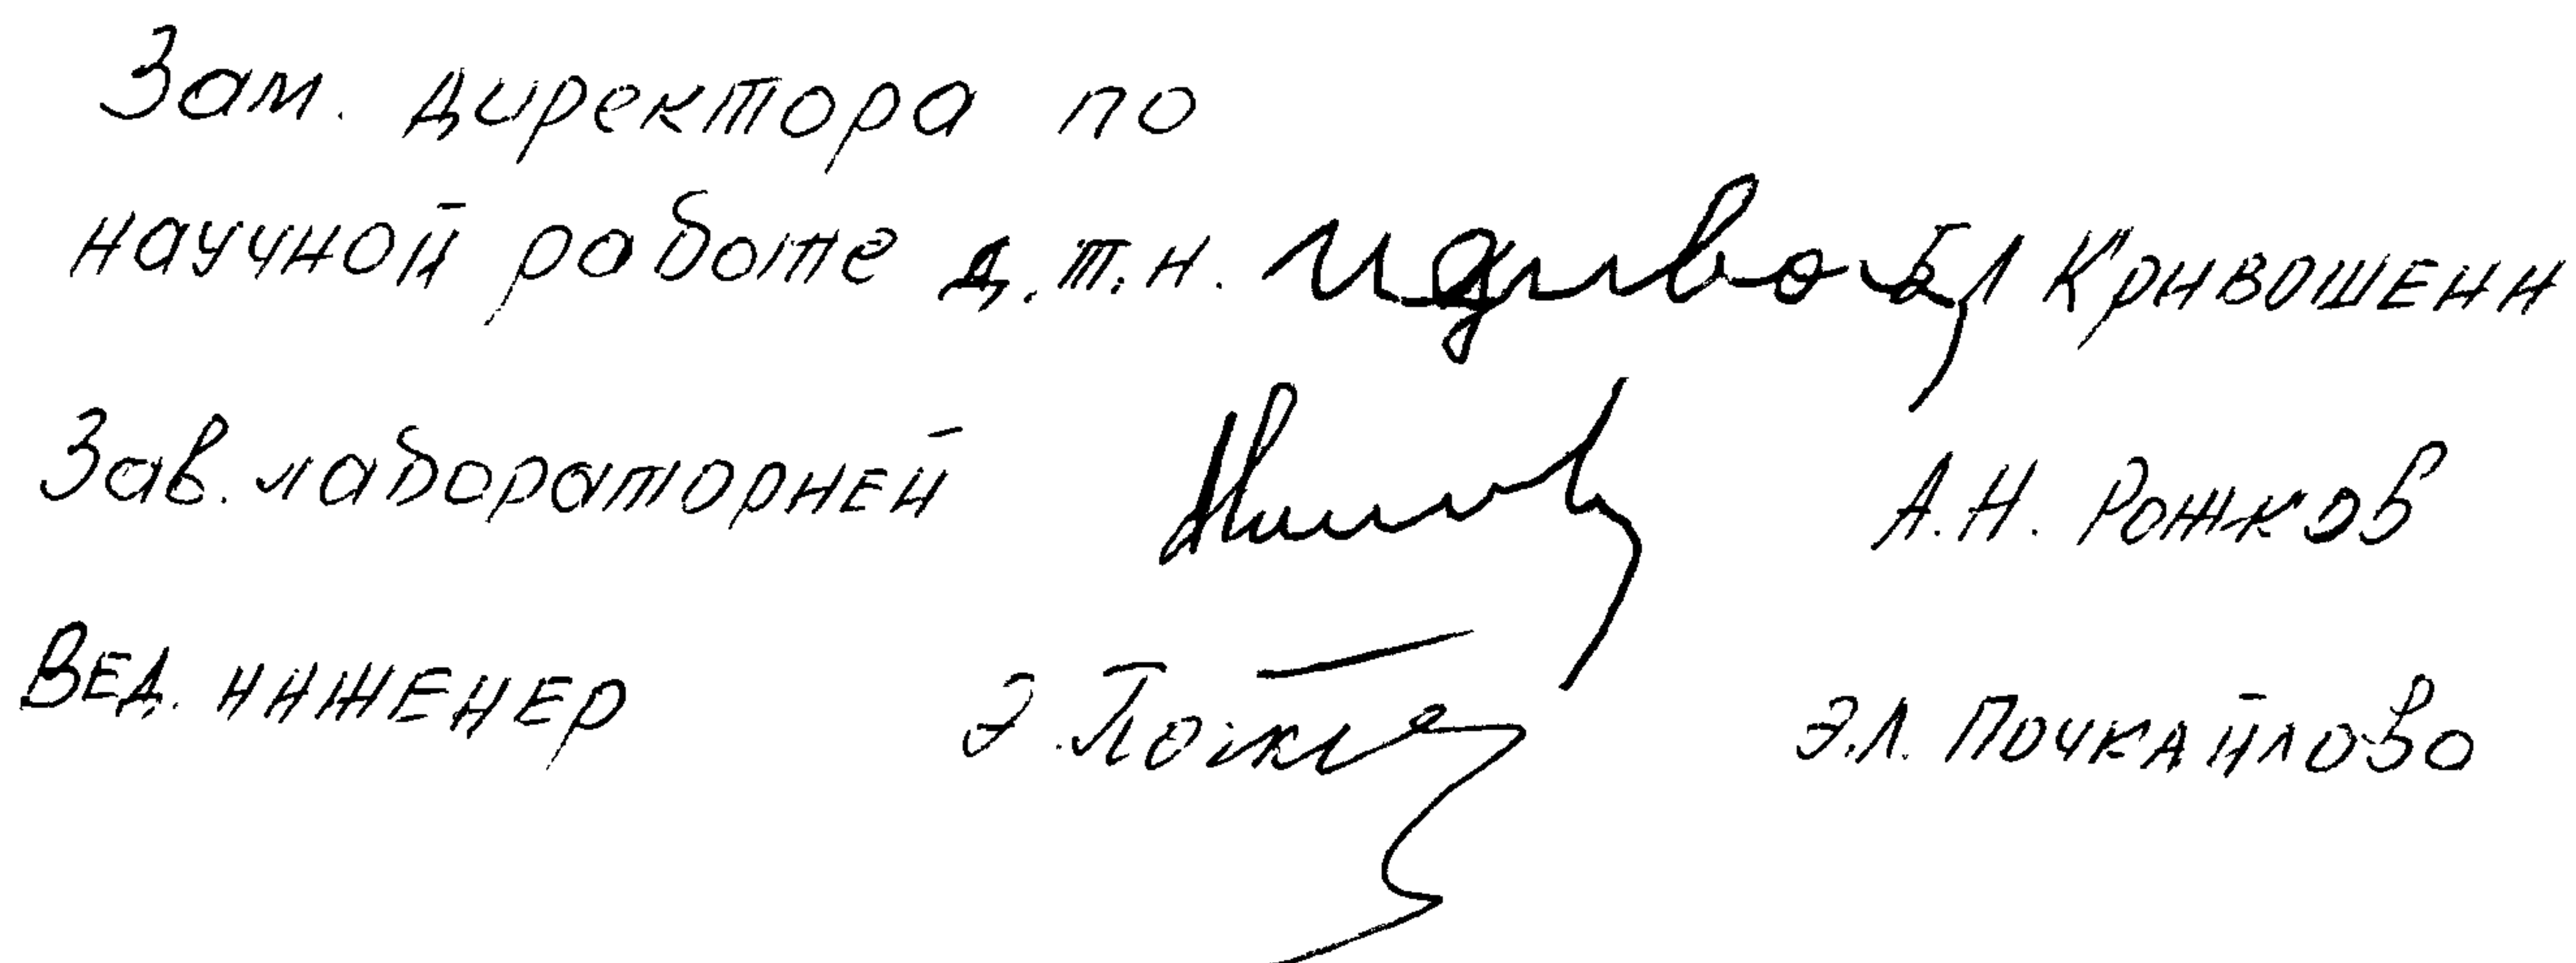 Зам. директора по
научной работе д.т.н. Б Л Кривошеин
Зав. лабораторией А.Н. Рожков
Вед. инженер Э.Л. Почкайлово